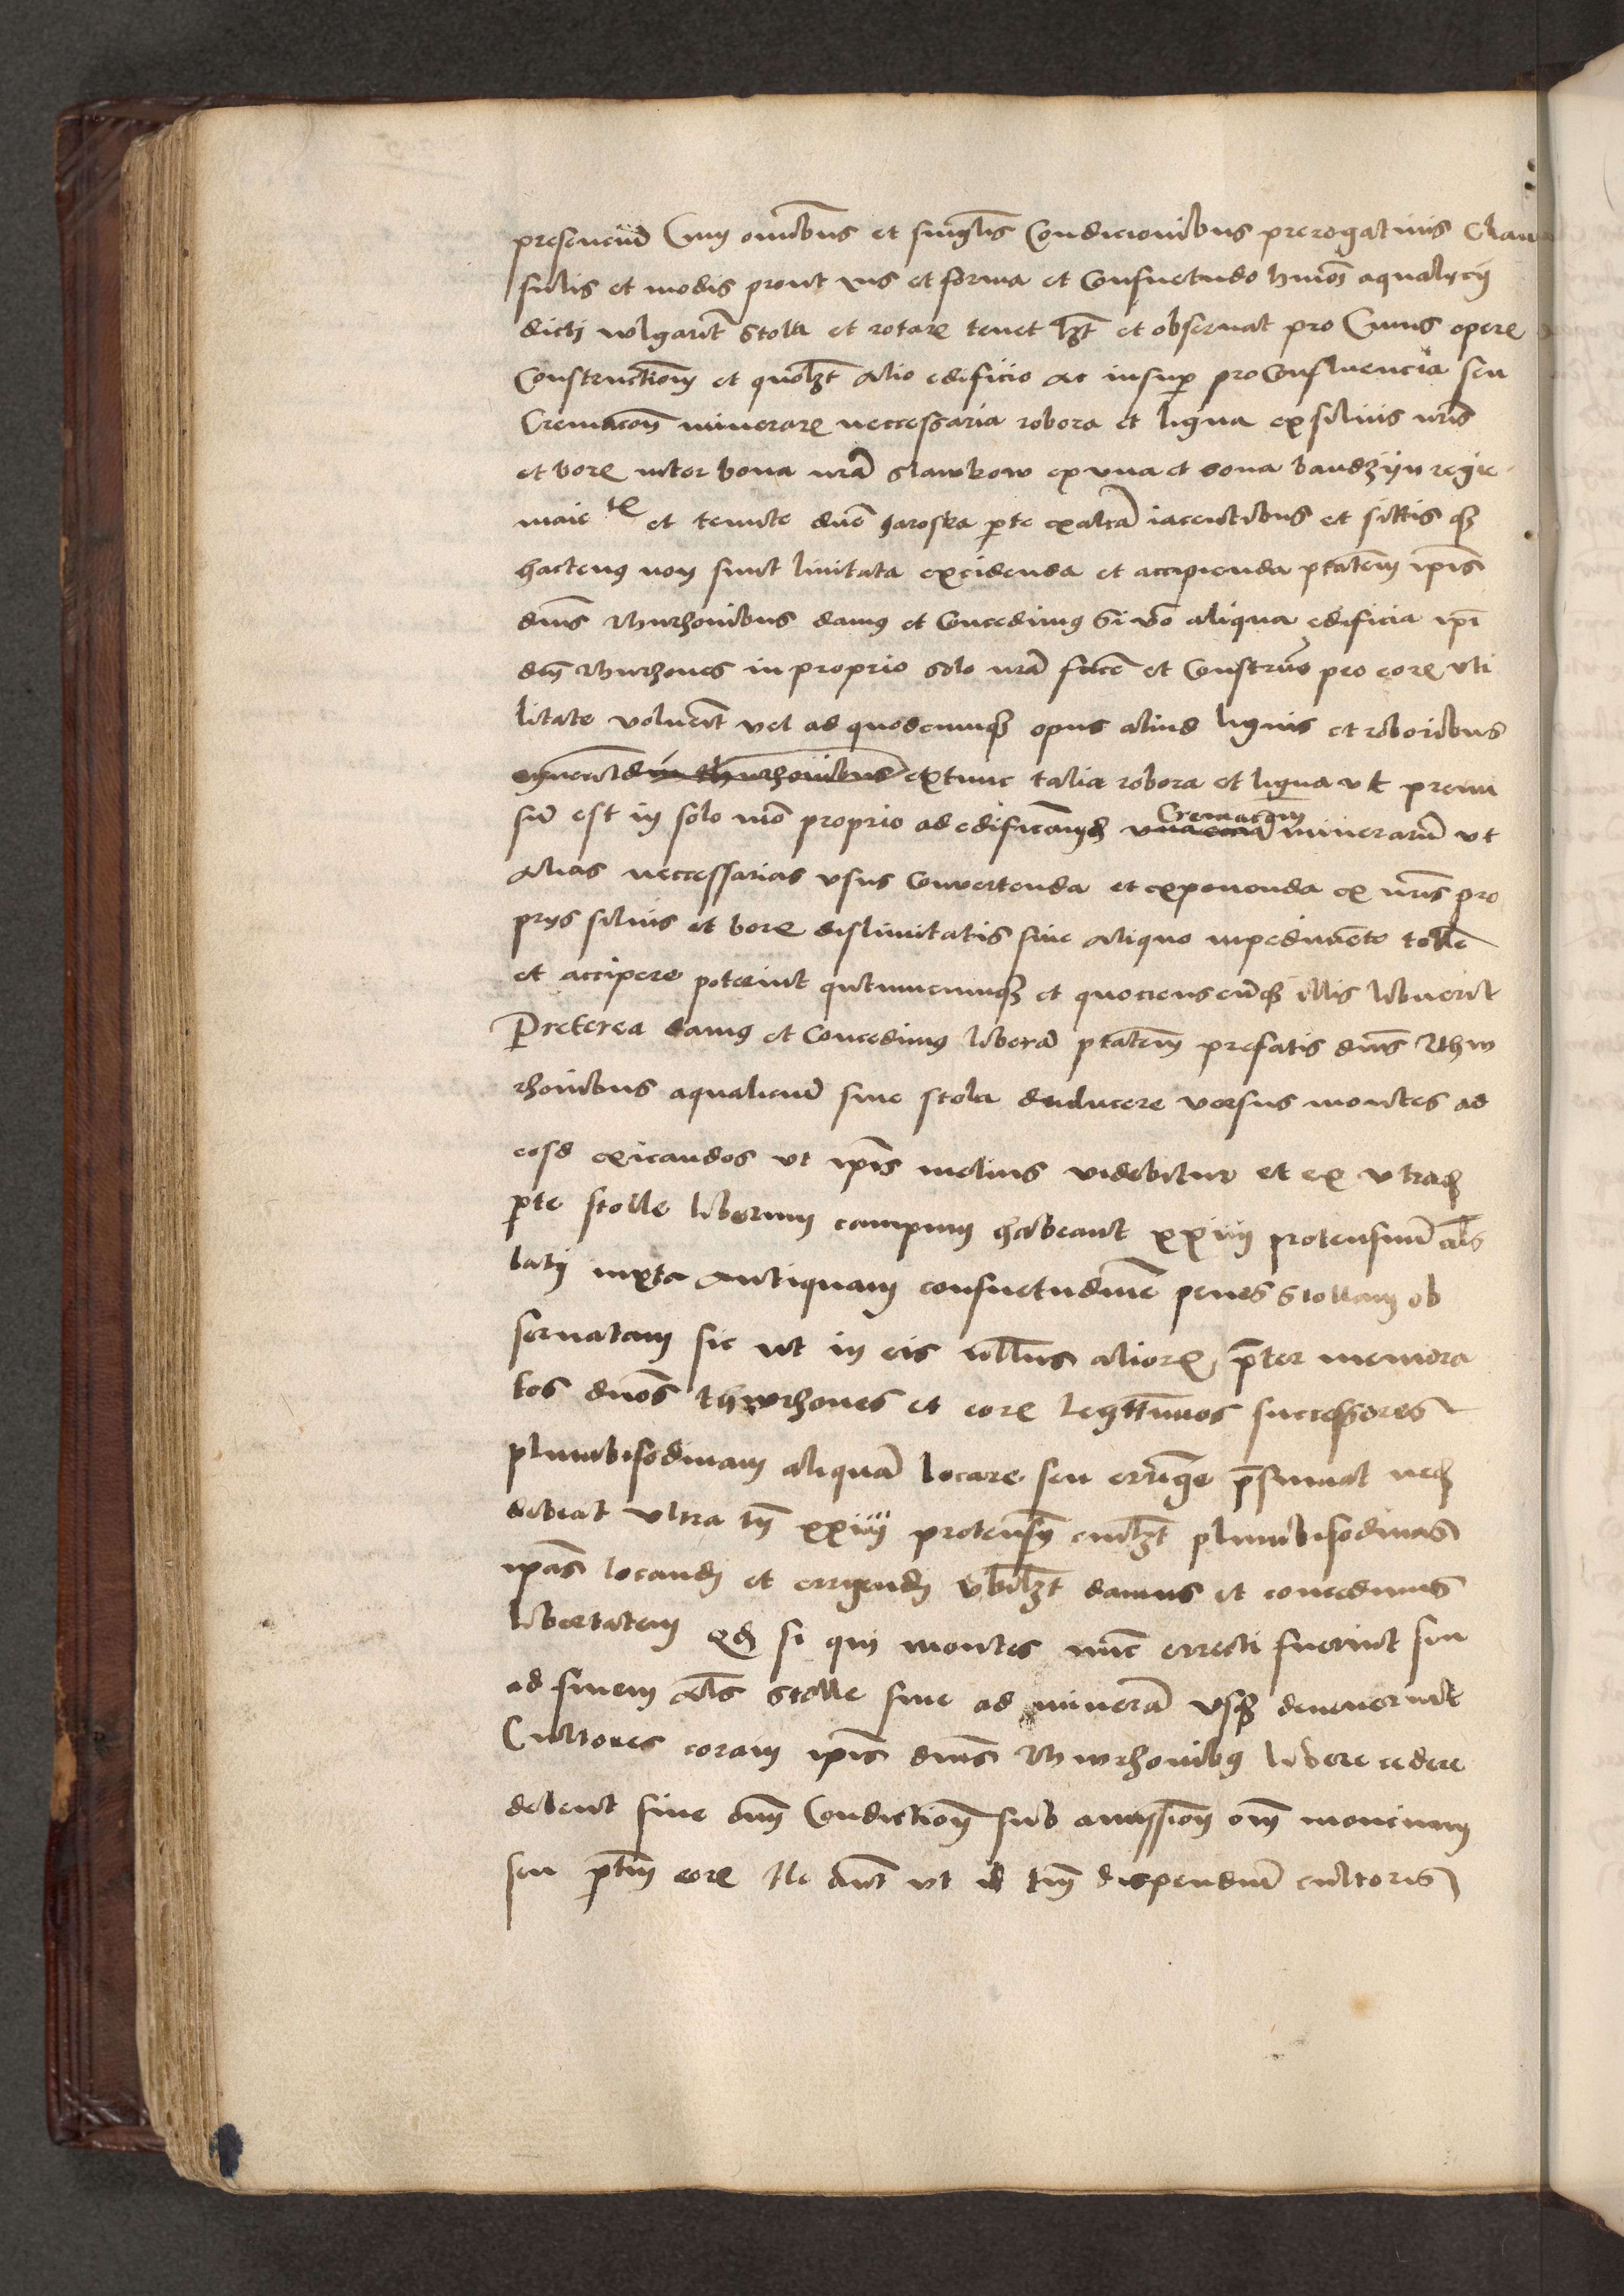 presencium Cum omnibus et singulis Condicionibus prerogativis Clau
sulis et modis prout ius et forma et Consuetudo huiusmodi aqualycij
dicti wlgarit Stola et rotare tenet habet et observat pro Cuius opere
Constructionem et quolibet alio edificio ac insuper pro Confluencia seu
Cremacionem minerarum neccessaria robora et ligna ex silvis nris
et borre inter bona nram Slawkow ex una et bona bandzijn regie
maie te et tenute dne parte ex altera iacentibus et sittis que
hactenus non sunt limitata excidenda et accipienda ptatem ipis
dnis Thurzonibus damus et Concedimus Si vero aliqua edificia ipi
dni Thurzones in proprio Solo nram facere et Construere pro eorum uti
litate voluerint vel ad quodcumque opus aliud lignis et roboribus
extunc talia robora et ligna ut premi
sum est in solo nro proprio ad edificandum Cremacionem minerarum ut
alias neccessarias usus convertenda et exponenda ex nris pro
prijs silvis et borre dislimitatis sine aliquo impedimento tollere
et accipere poterint quandocumque et quocienscumque illis libuerit
Preterea damus et Concedimus liberam ptatem prefatis dnis Thw
rhonibus aqualicium sive stola deducere versus montes ad
eosd exicandos ut ipis melius videbitur et ex utraque
parte stolle liberum campum habeant xxiiij protensum als
laty iuxta antiquam consuetudinem penes Stollam ob
servatam sic ut in eis nullus aliorum preter memora
tos dnos thwrhones et eorum legittimos successores
plumbifodinam aliquam locare seu erigere presumat neque
debeat ultra tn xxiiij protensum cuilibet plumbifodinas
ipas locandi et errigendi ubilibet damus et concedimus
libertatem Quod si qui montes nunc errecti fuerint seu
ad finem als Stolle sive ad mineram usque devenerint
Cultores coram ipis dnis Thwrhonibus libere cedere
debent sine omni Condictione sub amissione omnium moncium
seu partium eorum Ne aut ut id tm dispendium cultoris